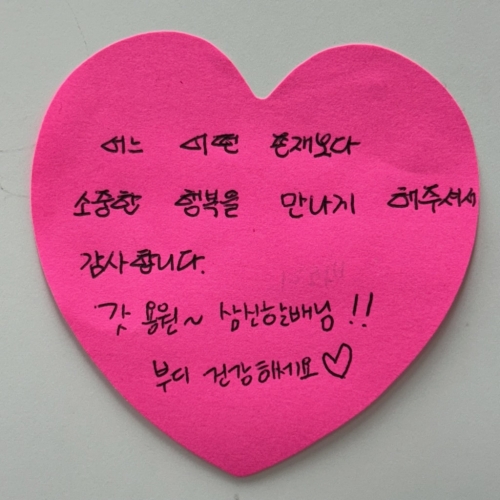 어느 어떤 존재보다
소중한 행복을 만나게 해주셔서
감사합니다.
갓 용원~ 삼신할배님 !!
부디 건강하세요♡